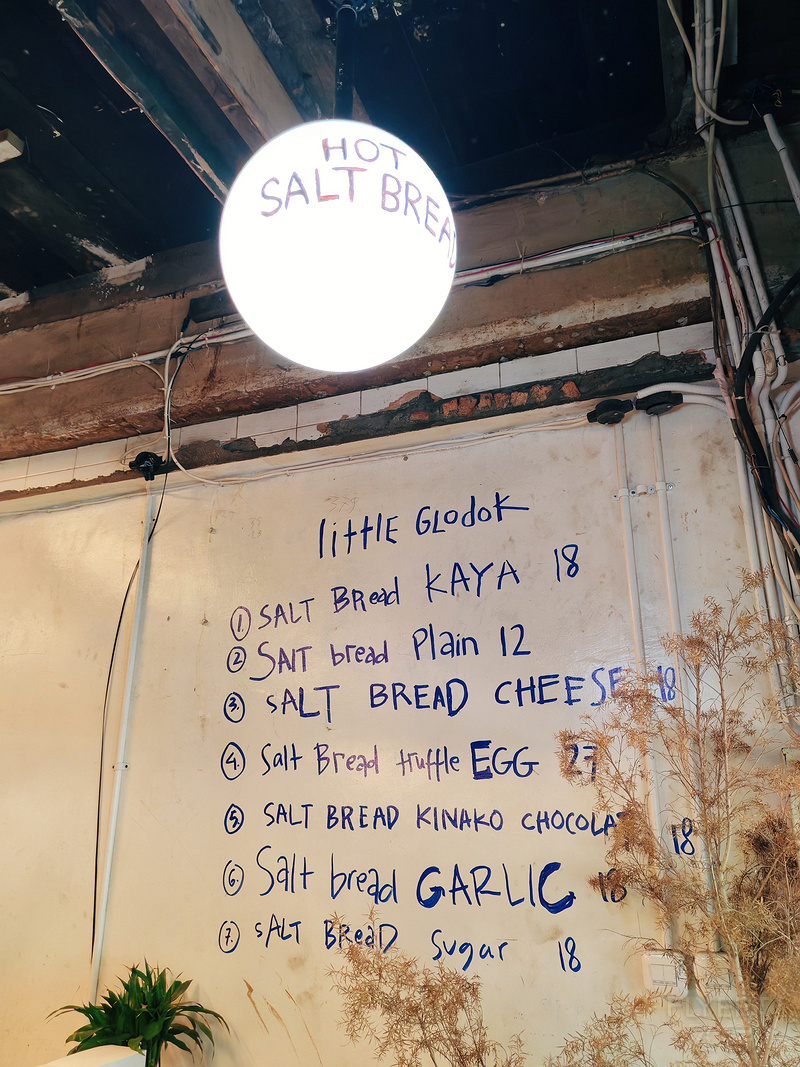 HOT
SALT BREAD
little GLodok
① SALT BRead KAYA 18
② SAlT bread Plain 12
③ sALT BREAD CHEESE 18
④ Salt Bread truffle EGG 27
⑤ SALT BREAD KINAKO CHOCOLAT 18
⑥ Salt bread GARLIC 18
⑦ sALT BReaD Sugar 18